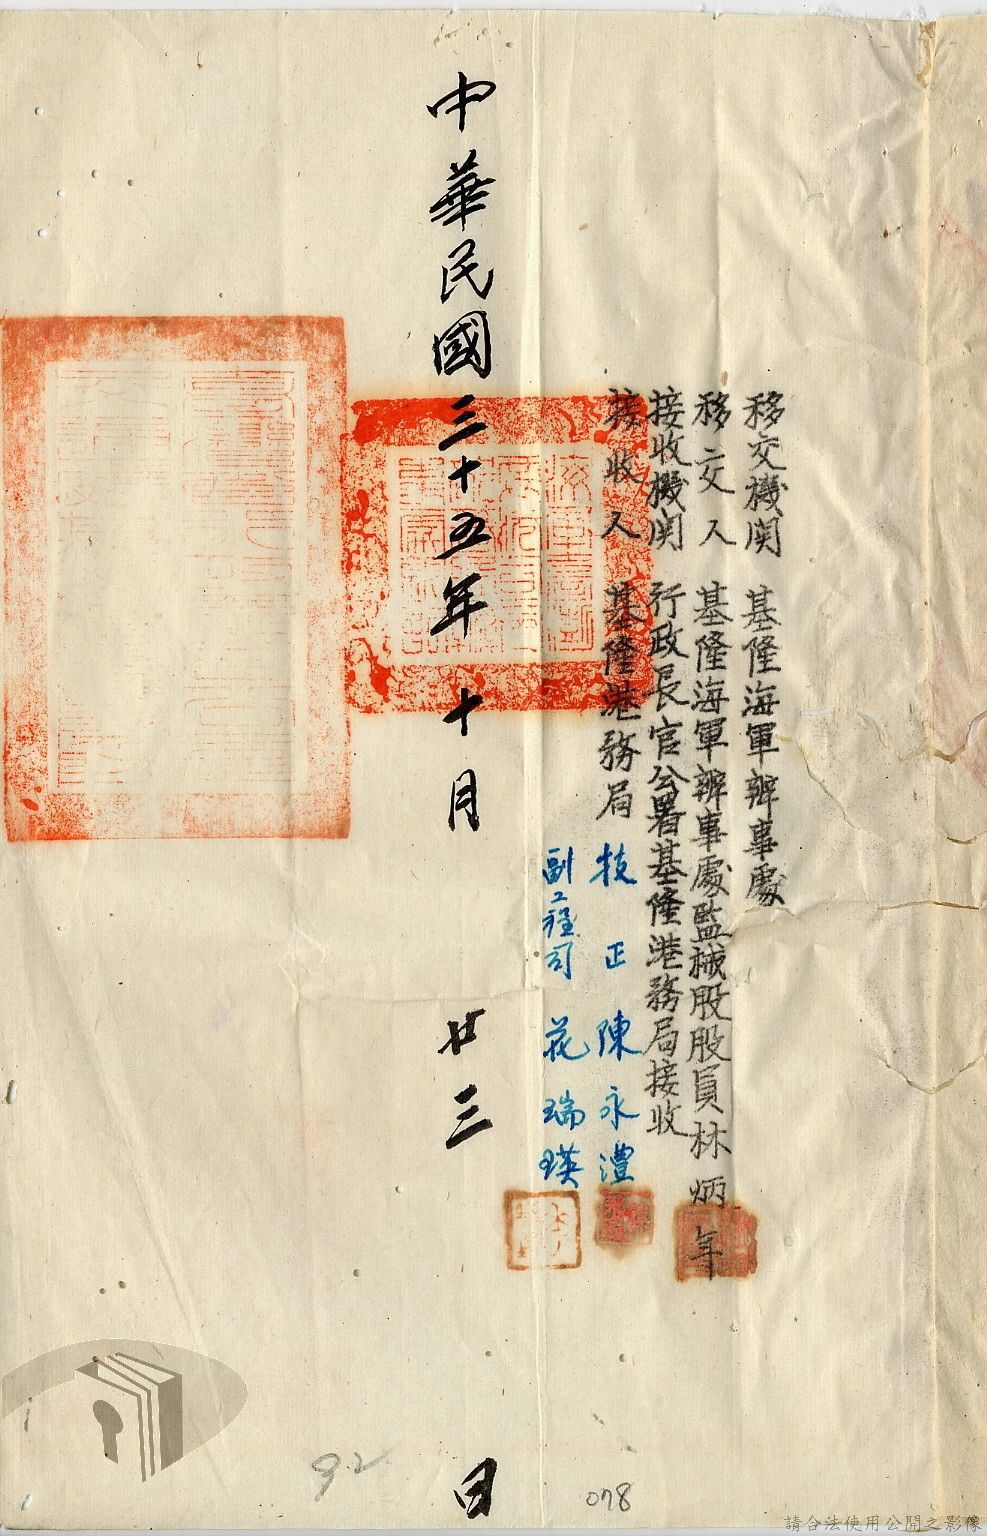 移交機関 基隆海軍辦事處
移交人 基隆海軍辦事處監械股股員林炳年
接收機関 行政長官公署基隆港務局接收
接收人 基隆港務局 技正 陳永灃
副工程司 花瑞瑛
中華民國三十五年十月廿三日
92
078
請合法使用公開之影像